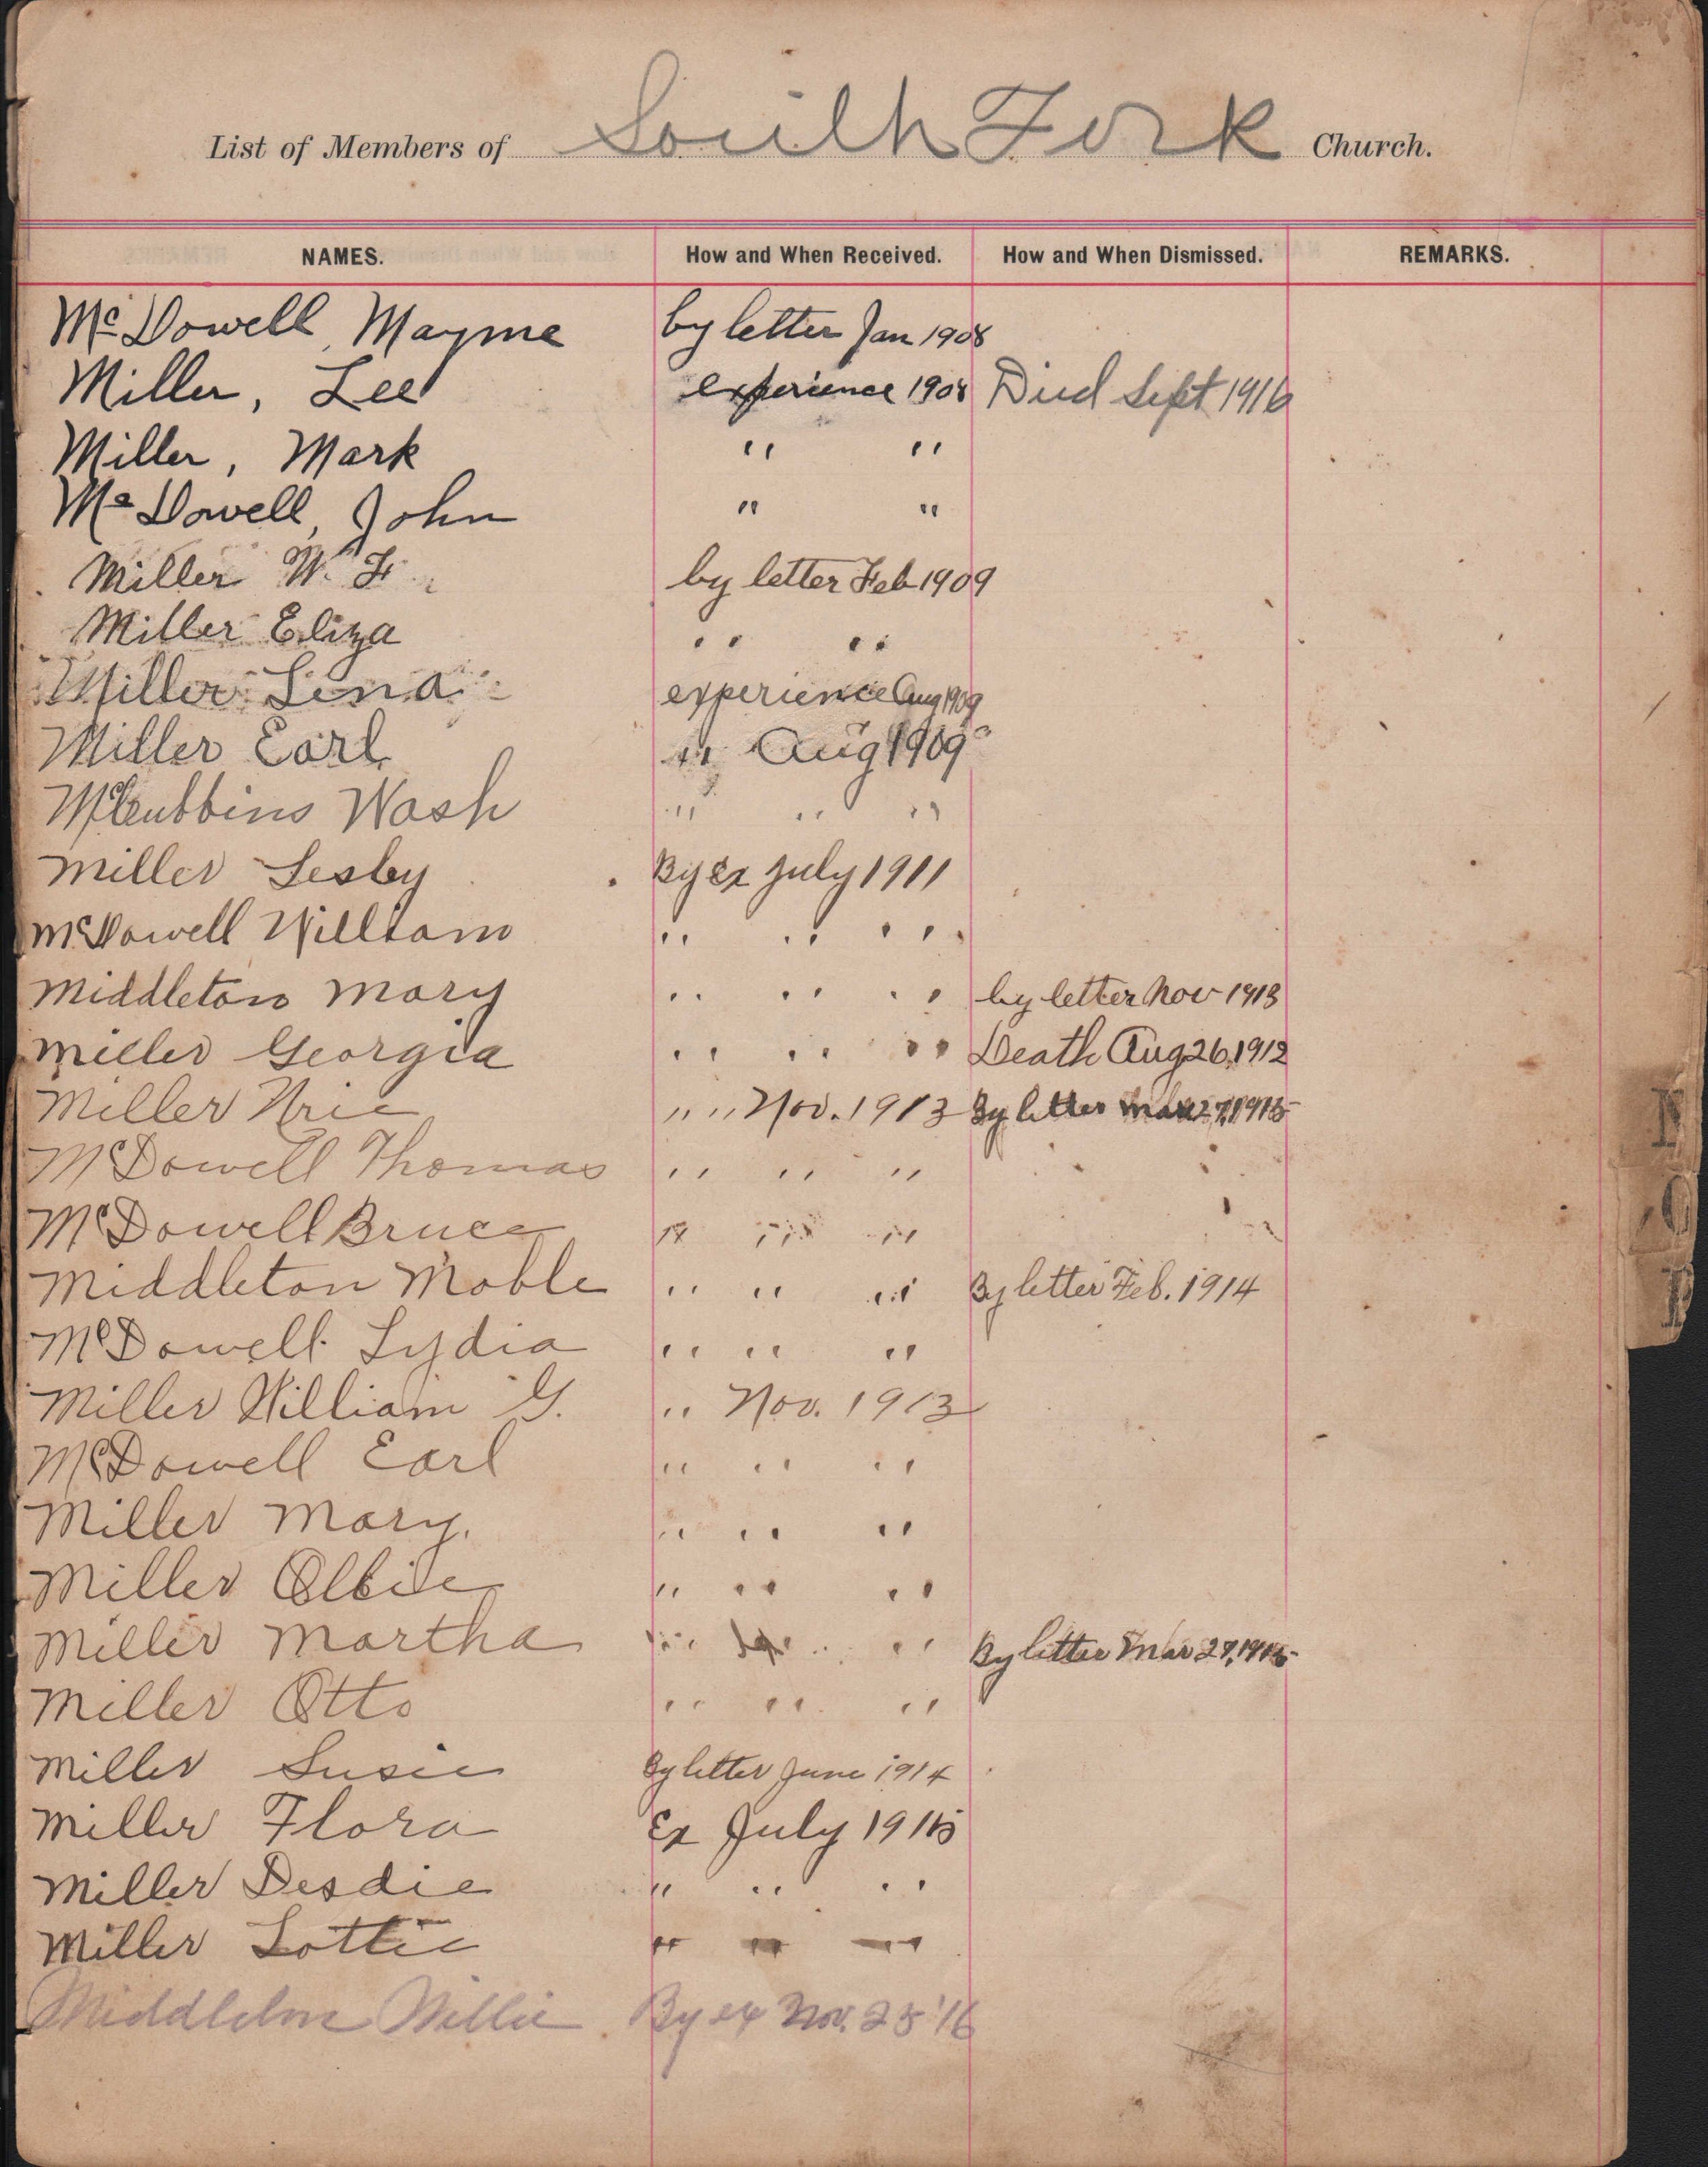 List of Members of South Fork Church.
NAMES. How and When Received. How and When Dismissed. REMARKS.
McDowell, Mayme by letter Jan 1908
Miller, Lee experience 1908 Died Sept 1916
Miller, Mark " "
McDowell, John " "
Miller W. F. by letter Feb 1909
Miller Eliza " "
Miller Lena experience Aug 1909
Miller Earl " Aug 1909
McCubbins Wash " " "
Miller Lesby By ex July 1911
McDowell William " " "
Middleton Mary " " " by letter Nov 1913
Miller Georgia " " " Death Aug 26, 1912
Miller " " Nov. 1913 By letter Mar 27, 1915
McDowell Thomas " " "
McDowell Bruce " " "
Middleton Moble " " " By letter Feb. 1914
McDowell Lydia " " "
Miller William G. " Nov. 1913
McDowell Earl " " "
Miller Mary. " " "
Miller Ollie " " "
Miller Martha " " " By letter Mar 27, 1915
Miller Otto " " "
Miller Susie By letter June 1914
Miller Flora Ex July 1915
Miller Desdie " " "
Miller Lottie " " "
Middleton Willie By ex Nov. 25 '16